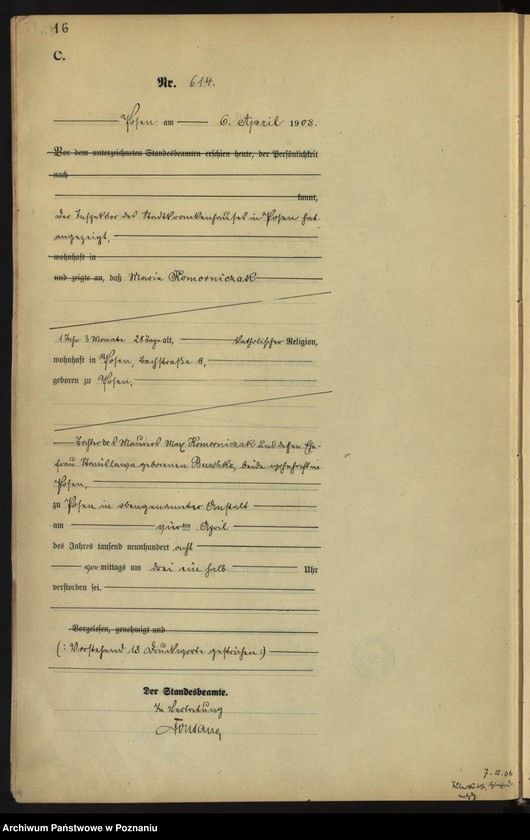 16
C.
Nr. 614.
Posen am 6. April 1908.
Vor dem unterzeichneten Standesbeamten erschien heute, der Persönlichkeit
nach
kannt,
Der Inspektor des Stadtkrankenhauses in Posen hat
angezeigt,
wohnhaft in
und zeigte an, daß Marie Komorniczak
1 Jahr 3 Monate 28 Tage alt, katholischer Religion,
wohnhaft in Posen, Bachstraße 11,
geboren zu Posen,
Tochter des Maurers Max Komorniczak und dessen Ehe-
frau Stanislawa geborenen, beide wohnhaft in
Posen,
zu Posen in obengenannter Anstalt
am vierten April
des Jahres tausend neunhundert acht
vor mittags um drei ein halb Uhr
verstorben sei.
Vorgelesen, genehmigt und
(: Vorstehend 13 Druckworte gestrichen :)
Der Standesbeamte.
In Vertretung
Archiwum Państwowe w Poznaniu